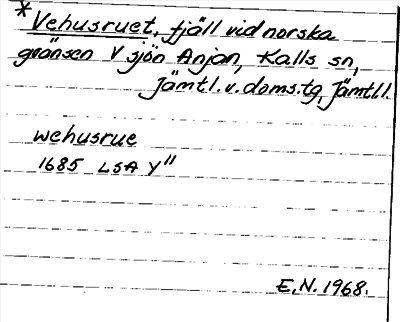 * Vehusruet, fjäll vid norska
gränsen V sjön Anjan, Kalls sn,
Jämtl. v. doms.tg, Jämtl l.
wehusrue
1685 LSA Y"
E.N. 1968.